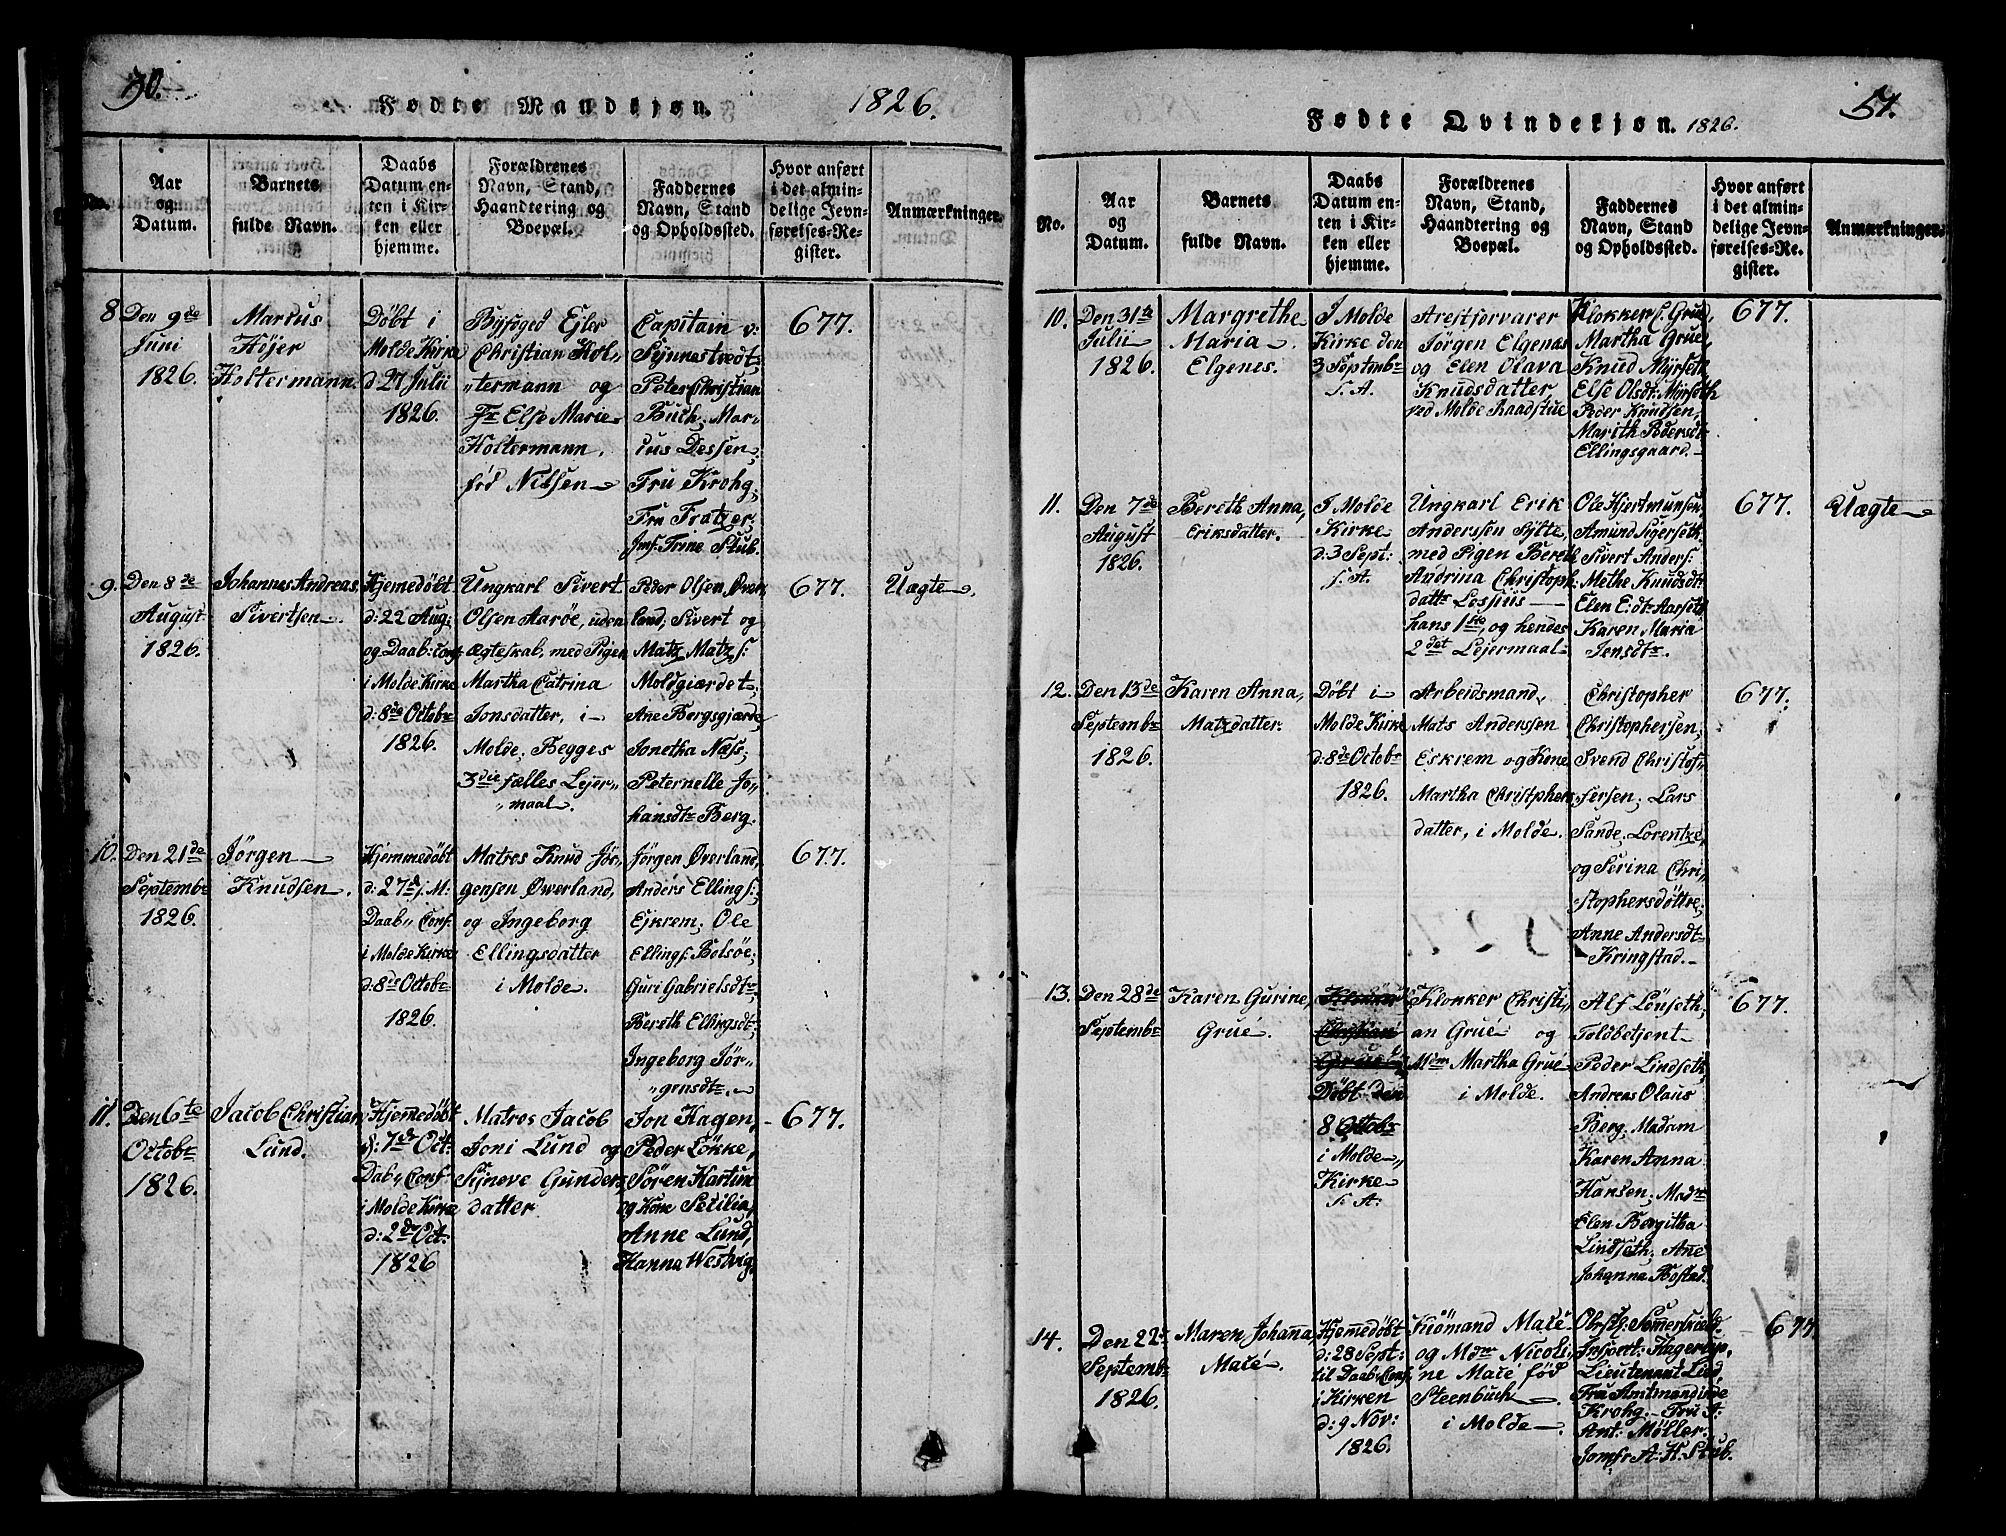 Fødte Mandkjøn. 1826.
No.
Aar
og
Datum.
Barnets
fulde Navn.
Daabs
Datum en-
ten i Kir-
ken eller
hjemme.
Forældrenes
Navn, Stand,
Haandtering og
Boepæl.
Faddernes
Navn, Stand
og Opholdssted.
Hvor anført
i det almin-
delige Jevn-
førelses-Re-
gister.
Anmærkninger.
8
Den 9de
Juni
1826.
Marcus
Højer
Holtermann.
Døbt i
Molde Kirke
d: 27 Julii
1826.
Byfoged Ejler
Christian Hol„
„termann og
Fr Else Marie
Holtermann,
fød Nilsen
Capitain v:
Synnestvedt;
Peter Christian
Buch; Mar-
cus Dessen;
Fru Krohg,
Fru Fratzer,
Jmf: Trine Stub.
677.
9.
Den 8de
August
1826.
Johannes Andreas
Sivertsen
Hjemedøbt
d: 22 Aug:
og Daab: conf
i Molde Kirke
d: 8de Octobr
1826.
Ungkarl Sivert
Olsen Aarøe, uden
Ægteskab, med Pigen
Martha Catrina
Jonsdatter, i
Molde; Begges
3die fælles Lejer„
„maal.
Peder Olsen Øver
land; Sivert og
Matz Matz s:
Moldgiærdet;
Ane Bergsgjærde,
Jonetha Næss;
Peternelle Jo„
hansdtr Berg.
677.
Uægte.
10.
Den 21de
Septembr
1826.
Jørgen
Knudsen.
Hjemmedøbt
d: 27d s. M:
Daab„ Conf.
i Molde Kirke
d: 8de Octobr
1826.
Matros Knud Jør-
gensen Øwerland,
og Ingeborg
Ellingsdatter
i Molde.
Jørgen Øverland,
Anders Ellings:
Ejkrem; Ole
Ellings: Bolsøe;
Guri Gabrielsdtr;
Bereth Ellingsdt:
Ingeborg Jør-
„gensdtr.
677.
11.
Den 6te
Octobr
1826.
Jacob Christian
Lund.
Hjemedøbt
d: 7de Oct:
Dab„ Conf
i Molde Kirke
d: 2de Oct.
1826
Matros Jacob
Joni Lund og
Synove Gunders
datter
Jon Hagen,
Peder Løkke,
Søren Hartum
og Kone Secilia,
Anne Lund,
Hanna Westvig.
677.
51.
Fødte Qvindekjøn. 1826.
No.
Aar
og
Datum.
Barnets
fulde Navn.
Daabs
Datum en-
ten i Kir-
ken eller
hjemme.
Forældrenes
Navn, Stand,
Haandtering og
Boepæl.
Faddernes
Navn, Stand
og Opholdssted.
Hvor anført
i det almin-
delige Jevn-
førelses-Re-
gister.
Anmærkninger.
10.
Den 31te
Julii
1826.
Margrethe
Maria
Elgenes.
I Molde
Kirke den
3 Septembr
s. A.
Arestforvarer
Jørgen Elgenas
og Elen Olava
Knudsdatter,
ved Molde Raadstue
Klokker C. Grue,
Martha Grue,
Knud Myrseth,
Else Olsdt: Myrseth
Peder Knudsen,
Marith Pedersdt
Ellingsgaard.
677.
11.
Den 7de
August
1826.
Bereth Anna,
Eriksdatter.
I Molde
Kirke
d: 3 Sept:
s. A.
Ungkarl Erik
Anderssen Sylte,
med Pigen Bereth
Andrina Christoph:
dattr Lossius
hans 1ste, og hendes
2det Lejermaal
Ole Hjertmunsen
Amund Sigerseth
Sivert Anders:
Methe Knudsdt:
Elen E:dt: Aarseth
Karen Maria
Jensdtr.
677.
Uægte
12.
Den 13de
Septembr
1826.
Karen Anna,
Matzdatter.
Døbt i
Molde Kirke
d: 8de Octobr
1826.
Arbeidsmand,
Mats Anderssen
Eskrem og Kone
Martha Christphers,
datter, i Molde.
Christopher
Christophersen;
Svend Christof„
fersen; Lars
Sande. Lorentze,
og Serina Chri-
stophersdøttre;
Anne Andersdt
Kringstad.
677.
13.
Den 28de
Septembr
Karen Gurine,
Grué.
Klokker
Christian
Grue
Døbt den
8 Octobr
i Molde„
Kirke
s. A.
Klokker Christi„
an Grue og
Mdm Martha Grué
i Molde.
Alf Lønseth,
Toldbetjent
Peder Lindseth,
Andreas Olaus
Berg. Madam
Karen Anna
Hansen; Madm
Elen Bergitha
Lindseth; Ane
Johanna Bostad.
677.
14.
Den 22de
Septembr
1826.
Maren Johanna,
Macé.
Hjemedøbt
d: 28 Sept:
til Daab: Conf
i Kirken
d: 9 Nov:
1826.
Kiømand Macé
og Mdm Nicoli„
ne Macé fød
Steenbuch
i Molde.
Lieutenant Lind,
Fru Amtmandinde
Krohg. Fru A:
Ant: Møller.
Jomfr A. H. Stub.
677.